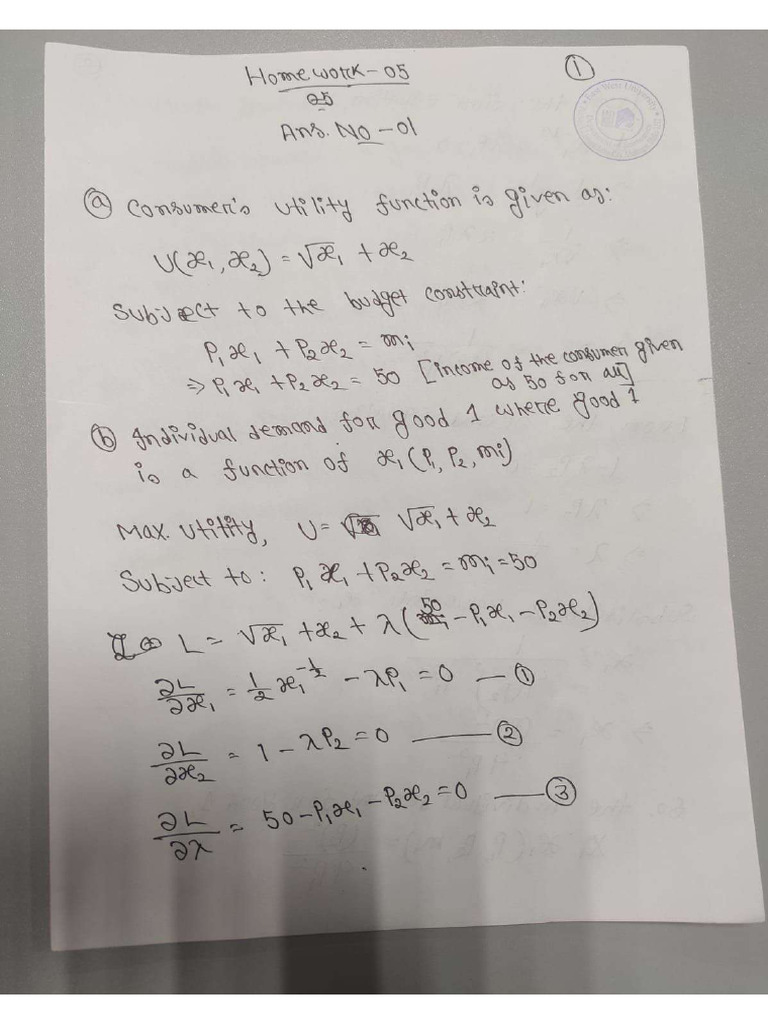 Homework-05
25
①
East West University
Ans. No-01
ⓐ Consumer's utility function is given as:
U(x₁, x₂) = √x₁ + x₂
Subject to the budget constraint:
P₁x₁ + P₂x₂ = mᵢ
⇒ P₁x₁ + P₂x₂ = 50 [Income of the consumer given
as 50 for all]
ⓑ Individual demand for good 1 where good 1
is a function of x₁(P₁, P₂, mᵢ)
Max. Utility, U = √x₁ + x₂
Subject to: P₁x₁ + P₂x₂ = mᵢ = 50
L = √x₁ + x₂ + λ(50 - P₁x₁ - P₂x₂)
∂L/∂x₁ = 1/2 x₁^(-1/2) - λP₁ = 0 — ①
∂L/∂x₂ = 1 - λP₂ = 0 — ②
∂L/∂λ = 50 - P₁x₁ - P₂x₂ = 0 — ③